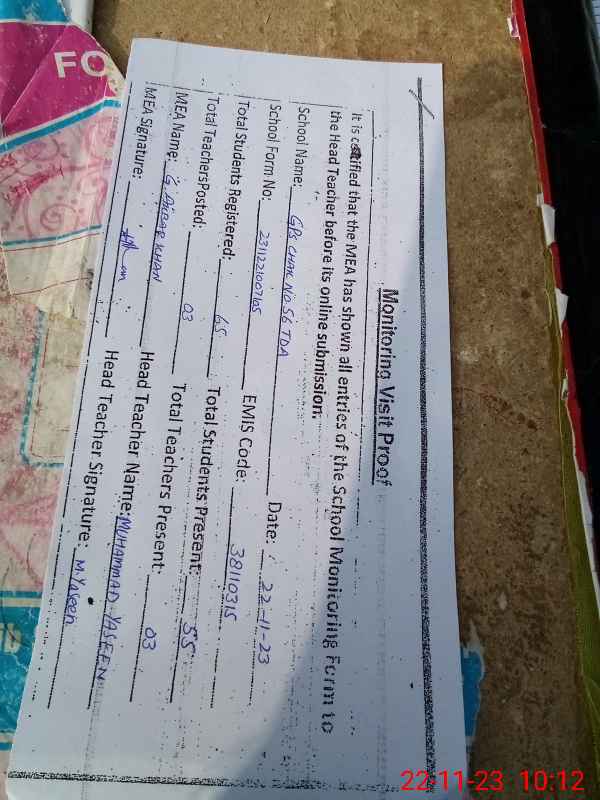 Monitoring Visit Proof
It is certified that the MEA has shown all entries of the School Monitoring Form to
the Head Teacher before its online submission.
School Name: GPS CHAK NO 56 TDA Date: 22-11-23
School Form No: 2311221007105 EMIS Code: 38110315
Total Students Registered: 65 Total Students Present: 55
Total TeachersPosted: 03 Total Teachers Present: 03
MEA Name: G. AKBAR KHAN Head Teacher Name: MUHAMMAD YASEEN
MEA Signature: Head Teacher Signature: M.Yaseen
FO
22-11-23 10:12